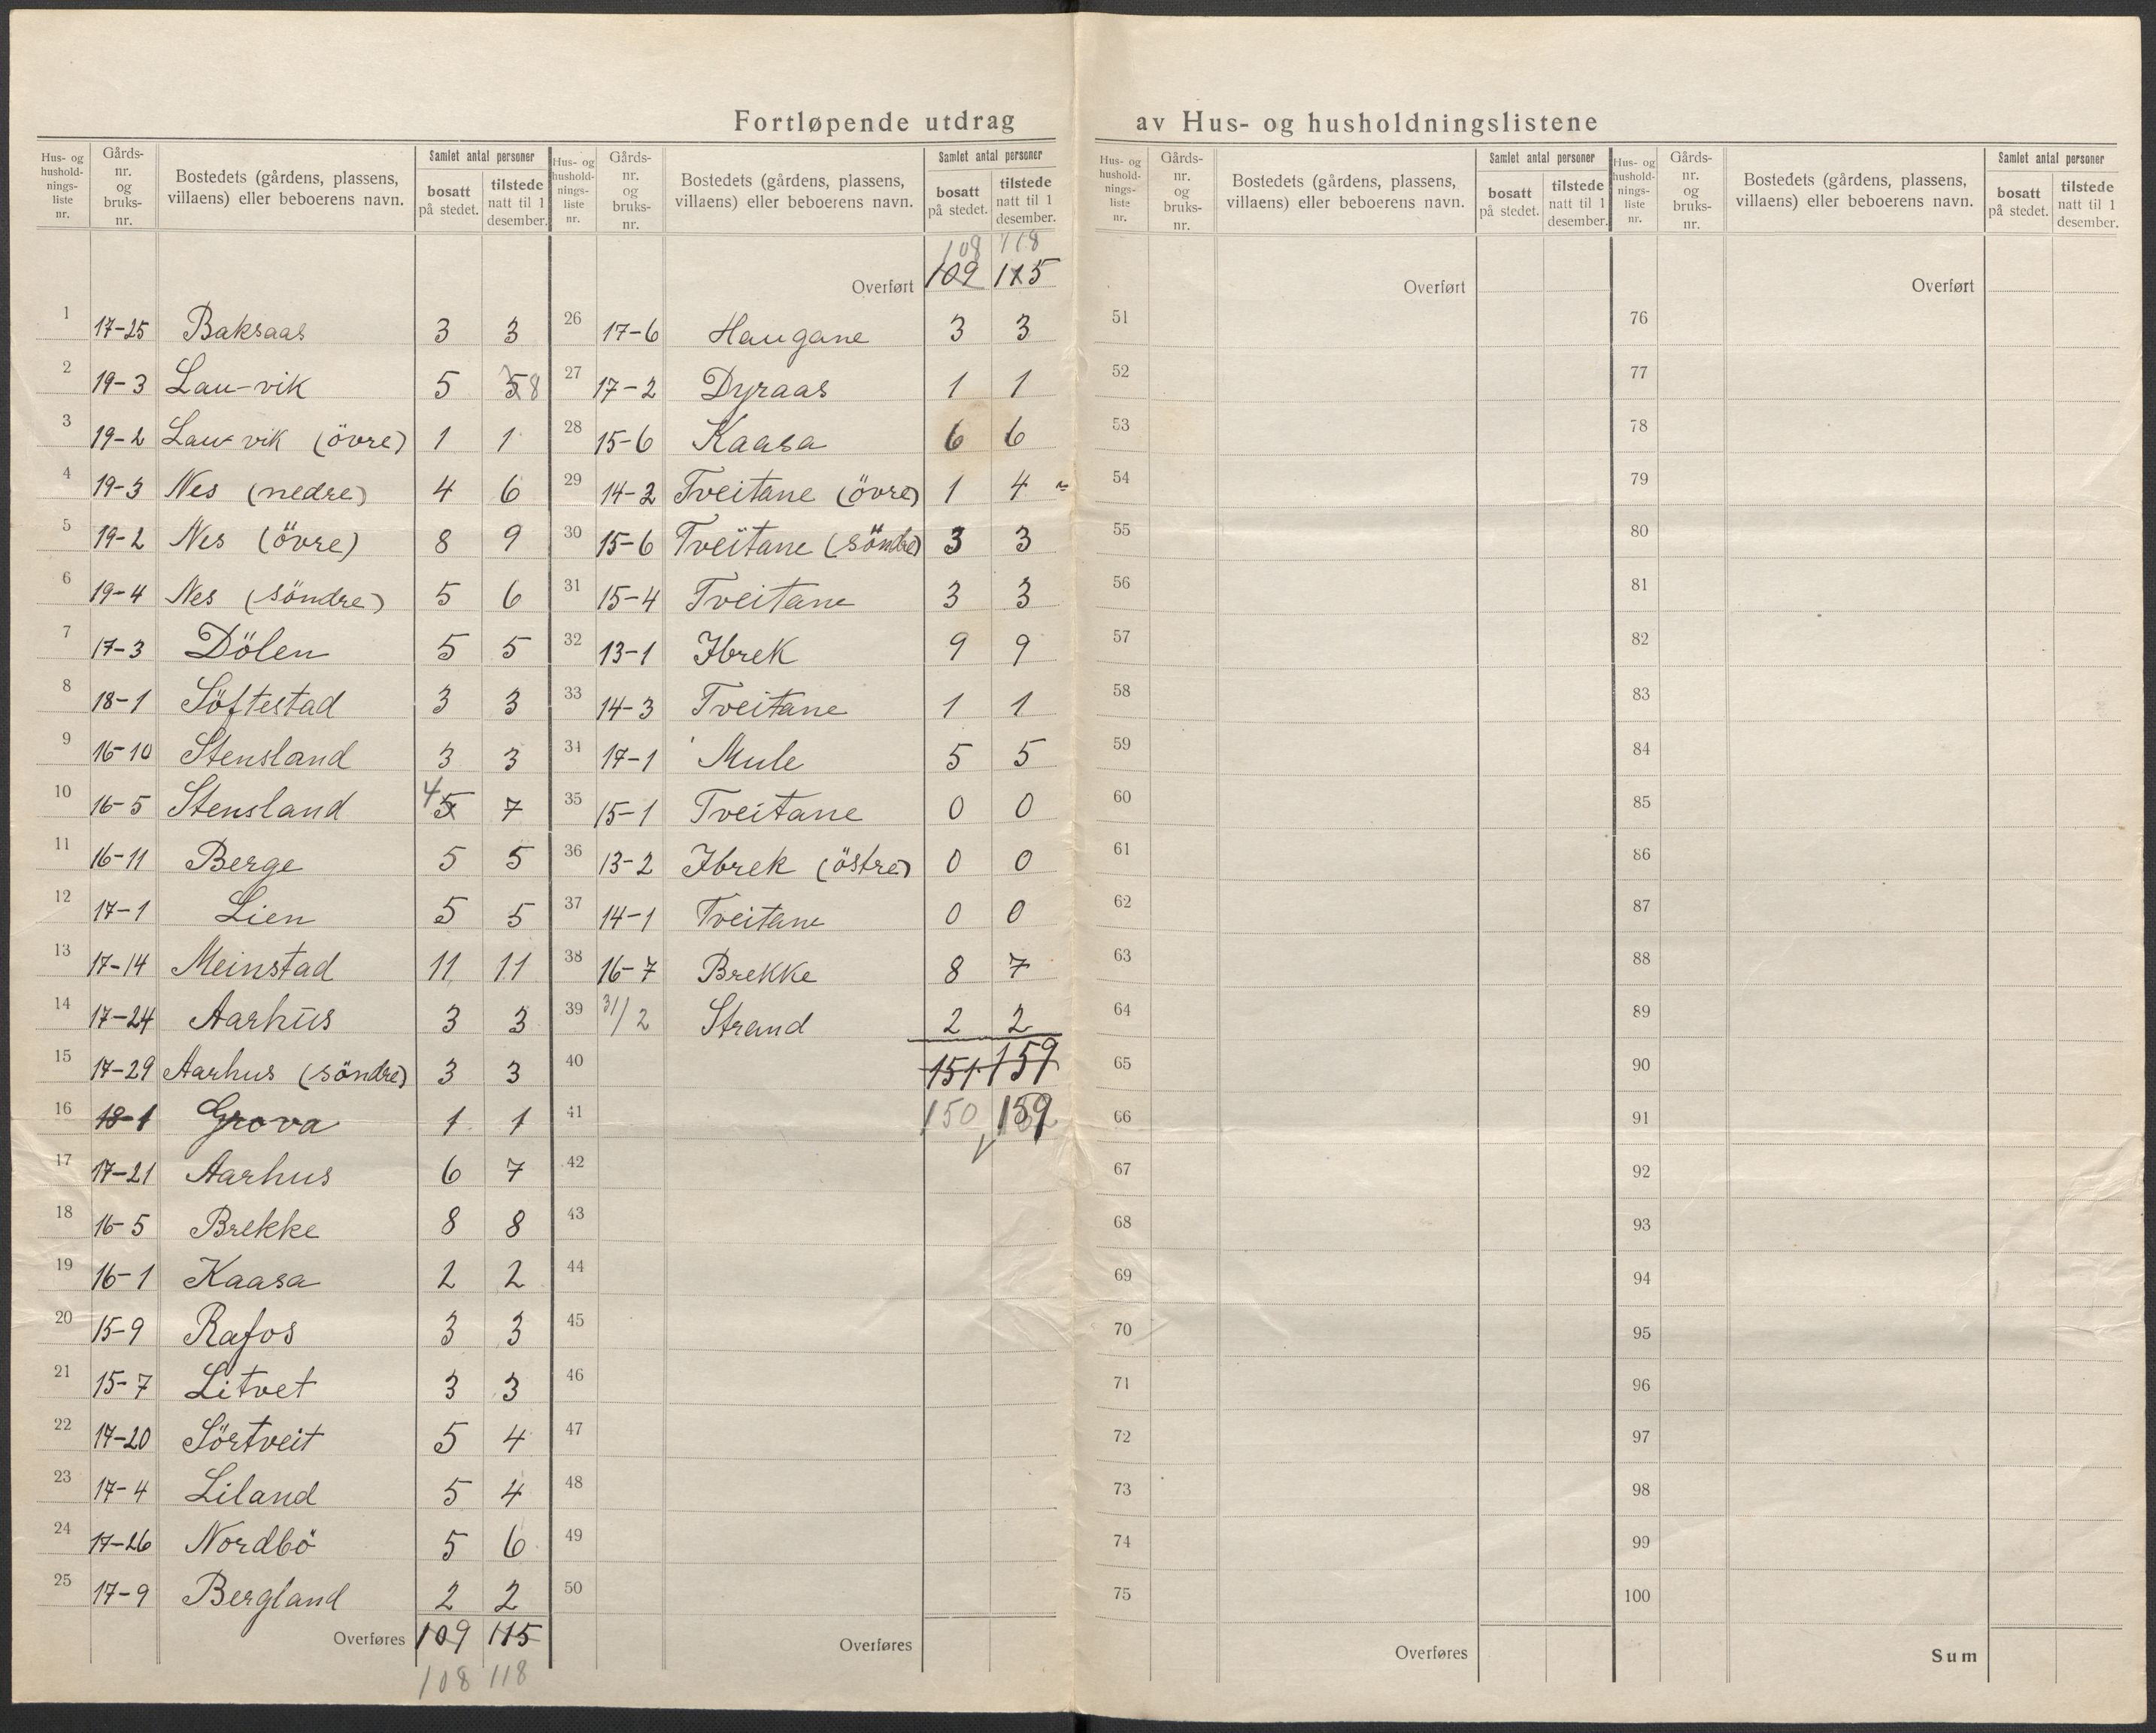 Fortløpende utdrag av Hus- og husholdningslistene
Hus- og husholdnings-liste nr. Gårds-nr. og bruks-nr. Bostedets (gårdens, plassens, villaens) eller beboerens navn. Samlet antal personer bosatt på stedet. tilstede natt til 1 desember.
1 17-25 Baksaas 3 3
2 19-3 Lau-vik 5 5 8
3 19-2 Lau-vik (övre) 1 1
4 19-3 Nes (nedre) 4 6
5 19-2 Nes (övre) 8 9
6 19-4 Nes (söndre) 5 6
7 17-3 Dölen 5 5
8 18-1 Söftestad 3 3
9 16-10 Stensland 3 3
10 16-5 Stensland 4 5 7
11 16-11 Berge 5 5
12 17-1 Lien 5 5
13 17-14 Meinstad 11 11
14 17-24 Aarhus 3 3
15 17-29 Aarhus (söndre) 3 3
16 18-1 Grova 1 1
17 17-21 Aarhus 6 7
18 16-5 Brekke 8 8
19 16-1 Kaasa 2 2
20 15-9 Rafos 3 3
21 15-7 Litvet 3 3
22 17-20 Sörtveit 5 4
23 17-4 Liland 5 4
24 17-26 Nordbö 5 6
25 17-9 Bergland 2 2
Overføres 109 115
108 118
Hus- og husholdnings-liste nr. Gårds-nr. og bruks-nr. Bostedets (gårdens, plassens, villaens) eller beboerens navn. Samlet antal personer bosatt på stedet. tilstede natt til 1 desember.
108 118
Overført 109 115
26 17-6 Haugane 3 3
27 17-2 Dyraas 1 1
28 15-6 Kaasa 6 6
29 14-2 Tveitane (övre) 1 4
30 15-6 Tveitane (söndre) 3 3
31 15-4 Tveitane 3 3
32 13-1 Ibrek 9 9
33 14-3 Tveitane 1 1
34 17-1 Mule 5 5
35 15-1 Tveitane 0 0
36 13-2 Ibrek (östre) 0 0
37 14-1 Tveitane 0 0
38 16-7 Brekke 8 7
39 31/2 Strand 2 2
40 151 159
41 150 159
42
43
44
45
46
47
48
49
50
Overføres
Hus- og husholdnings-liste nr. Gårds-nr. og bruks-nr. Bostedets (gårdens, plassens, villaens) eller beboerens navn. Samlet antal personer bosatt på stedet. tilstede natt til 1 desember.
Overført
51
52
53
54
55
56
57
58
59
60
61
62
63
64
65
66
67
68
69
70
71
72
73
74
75
Overføres
Hus- og husholdnings-liste nr. Gårds-nr. og bruks-nr. Bostedets (gårdens, plassens, villaens) eller beboerens navn. Samlet antal personer bosatt på stedet. tilstede natt til 1 desember.
Overført
76
77
78
79
80
81
82
83
84
85
86
87
88
89
90
91
92
93
94
95
96
97
98
99
100
Sum